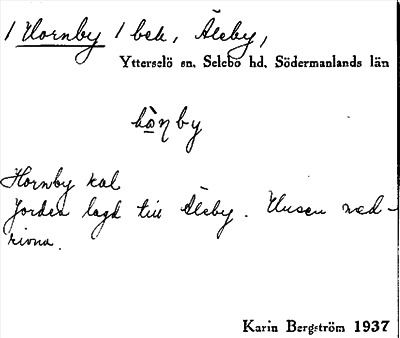 / Hornby / beh, Åleby,
Ytterselö sn. Selebo hd. Södermanlands län
by
Hornby kal
Jorden lagd till Åleby. Husen ned-
rivna.
Karin Bergström 1937